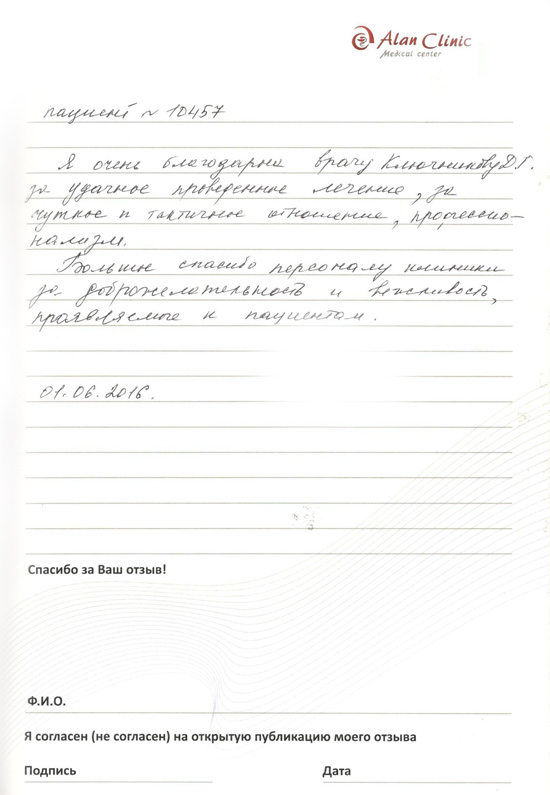 Alan Clinic
Medical center
пациент № 10457
Я очень благодарна врачу Ключникову Д.Г.
за удачное проведенное лечение, за
чуткое и тактичное отношение, професcио-
нализм.
Большое спасибо персоналу клиники
за доброжелательность и вежливость,
проявляемые к пациентам.
01.06.2016.
Спасибо за Ваш отзыв!
Ф.И.О.
Я согласен (не согласен) на открытую публикацию моего отзыва
Подпись Дата